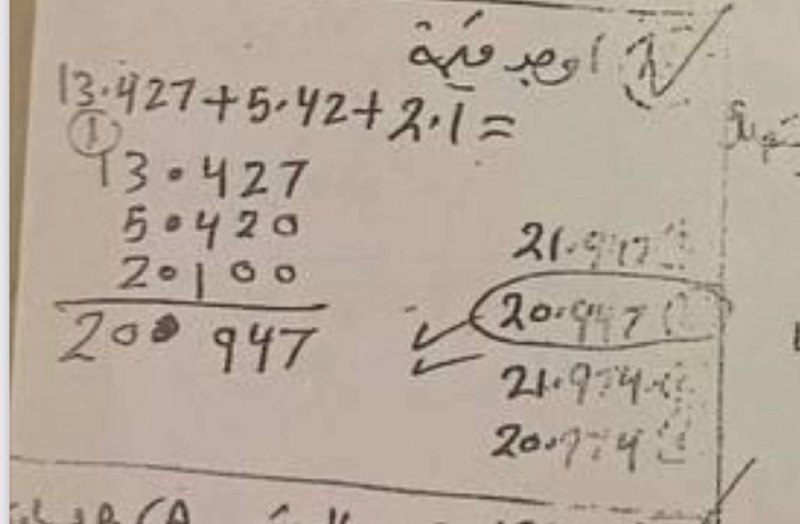 أوجد قيمة
13.427+5.42+2.1=
1
13.427
5.420
2.100
20.947
21.947
20.947
21.974
20.774